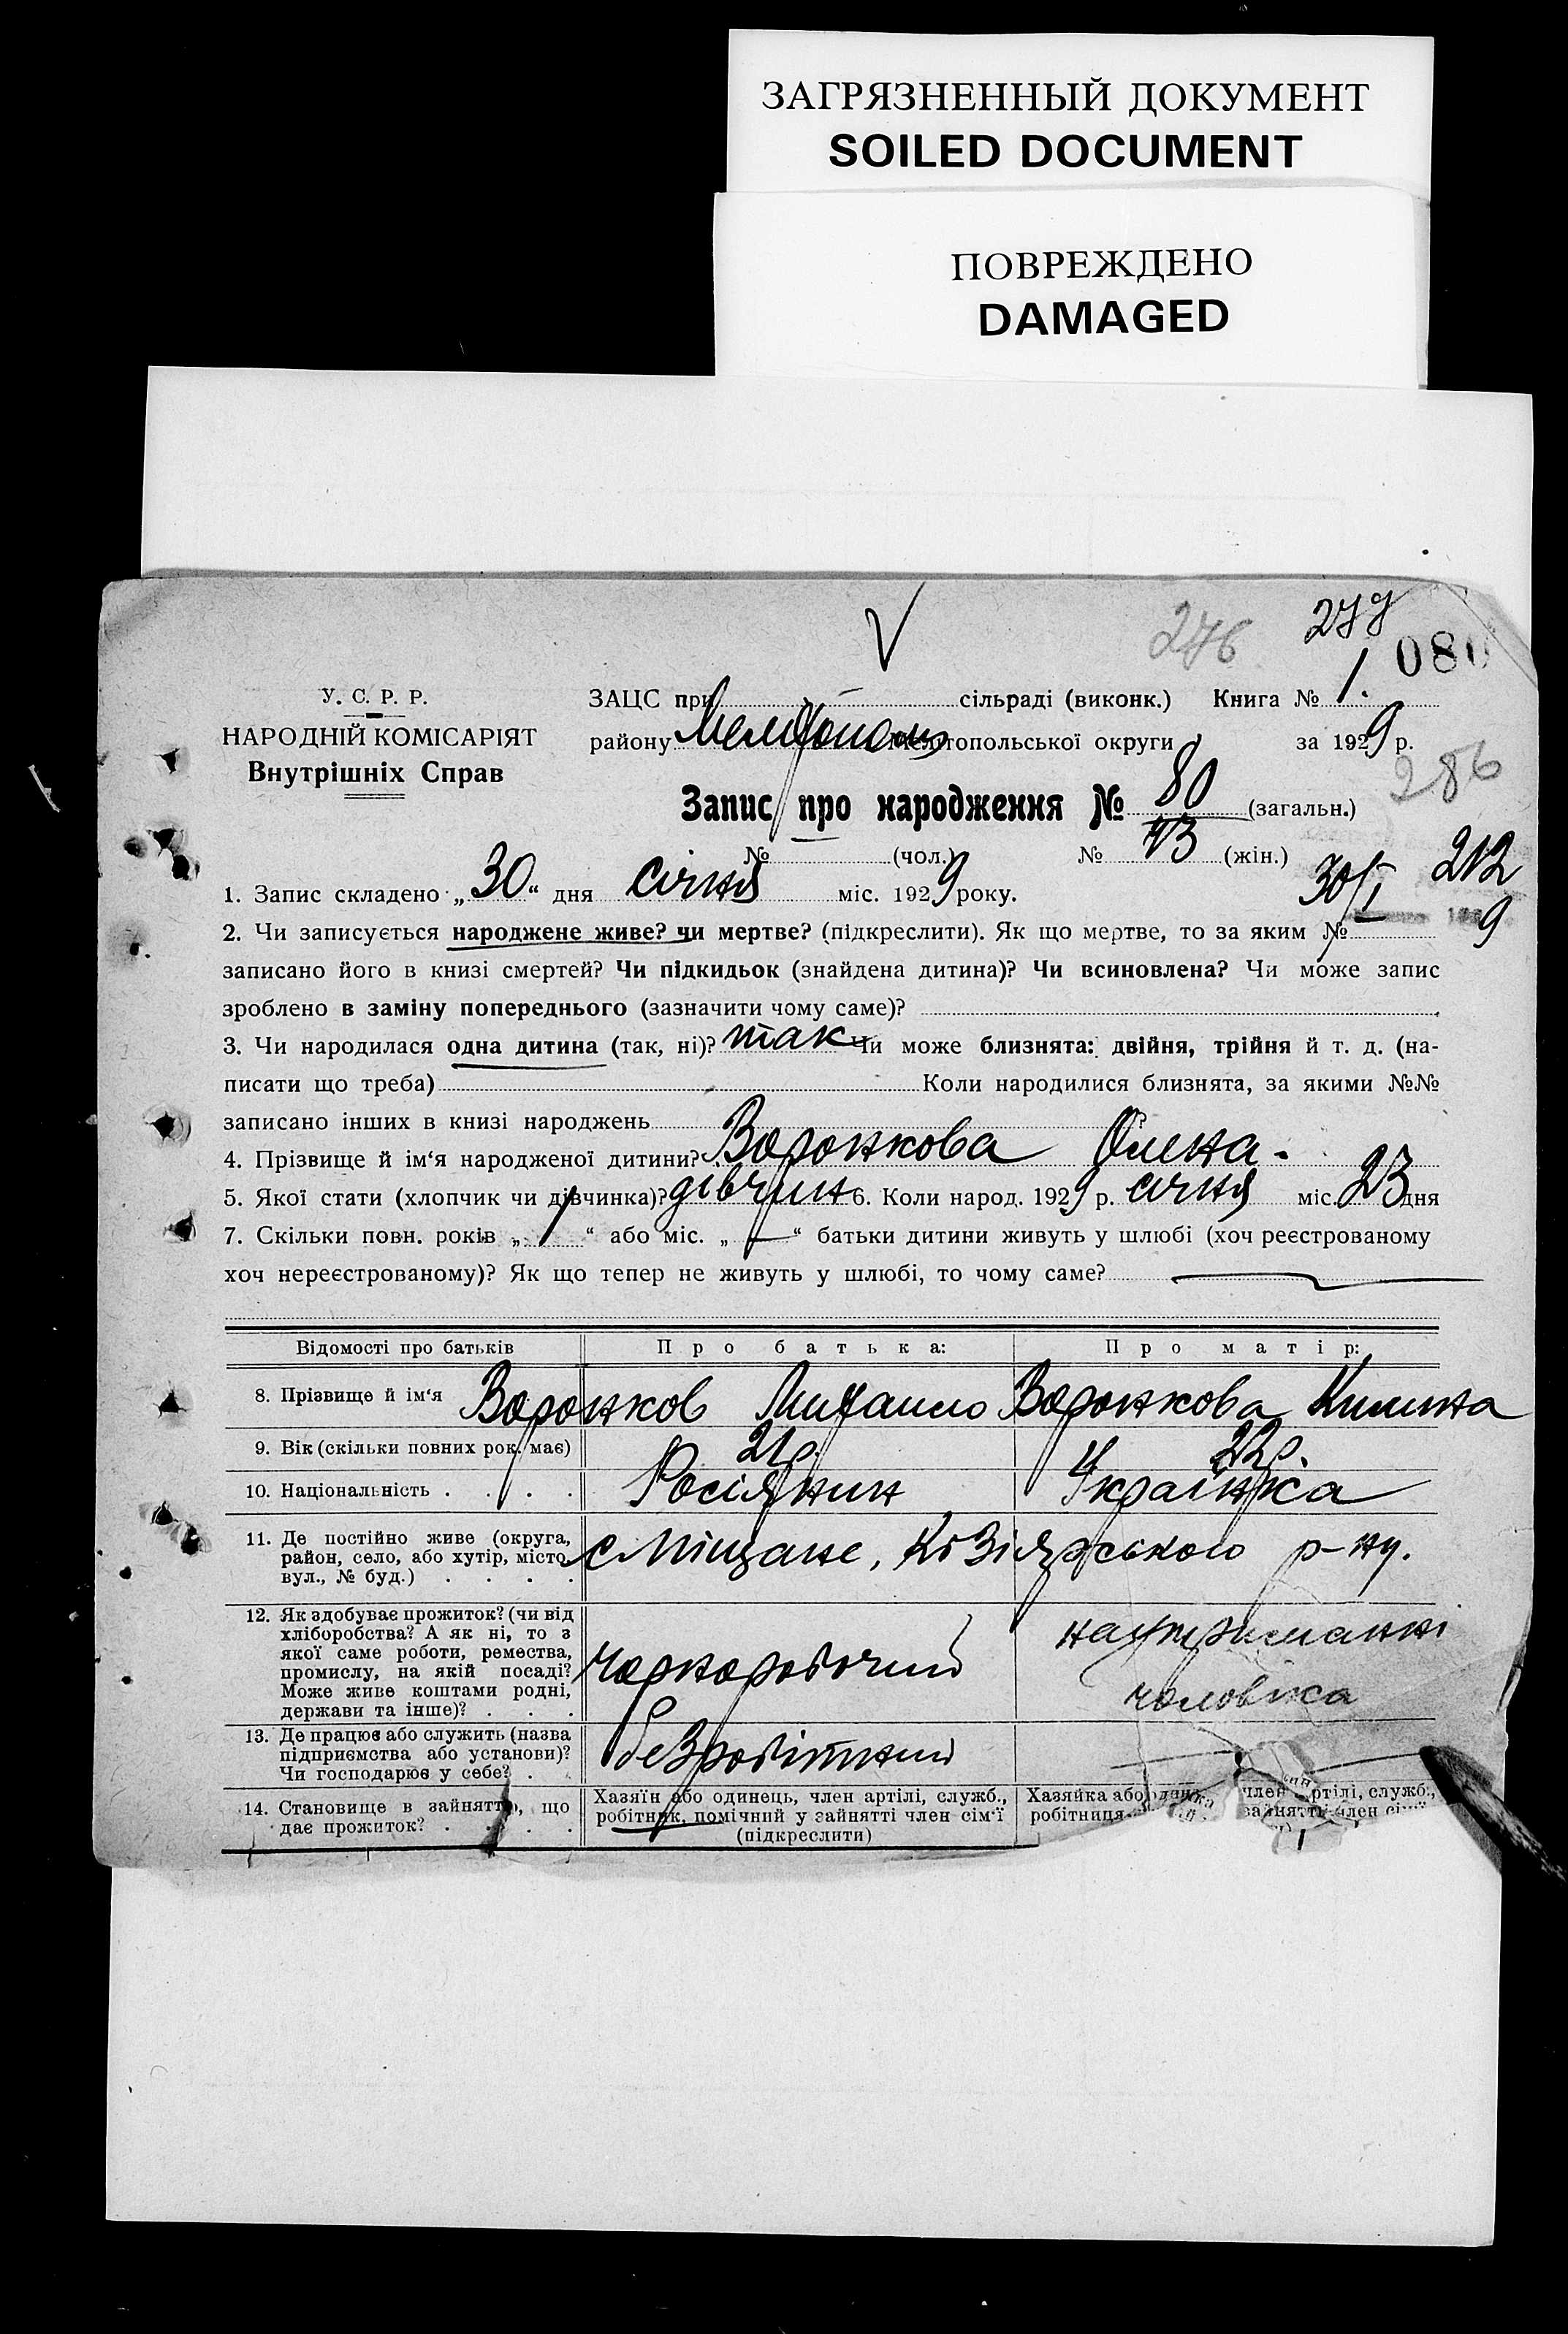 ЗАГРЯЗНЕННЫЙ ДОКУМЕНТ
SOILED DOCUMENT
ПОВРЕЖДЕНО
DAMAGED
276 277
080
У. С. Р. Р. ЗАЦС при сільраді (виконк.) Книга № 1.
НАРОДНІЙ КОМІСАРІЯТ району Мелітополь Мелітопольської округи за 1929 р.
Внутрішніх Справ
286
Запис про народження № 80 (загальн.)
№ (чол.) № 43 (жін.)
30/I 212
1. Запис складено „30“ дня січня міс. 1929 року.
9
2. Чи записується народжене живе? чи мертве? (підкреслити). Як що мертве, то за яким №
записано його в книзі смертей? Чи підкидьок (знайдена дитина)? Чи всиновлена? Чи може запис
зроблено в заміну попереднього (зазначити чому саме)?
3. Чи народилася одна дитина (так, ні)? так Чи може близнята: двійня, трійня й т. д. (на-
писати що треба) Коли народилися близнята, за якими №№
записано інших в книзі народжень
4. Прізвище й ім‘я народженої дитини? Воронкова Олена.
5. Якої стати (хлопчик чи дівчинка)? дівчин 6. Коли народ. 1929 р. січня міс. 23 дня
7. Скільки повн. років „1“ або міс. „—“ батьки дитини живуть у шлюбі (хоч реєстрованому
хоч нереєстрованому)? Як що тепер не живуть у шлюбі, то чому саме?
Відомості про батьків Про батька: Про матір:
8. Прізвище й ім‘я Воронков Михайло Воронкова Килина
9. Вік (скільки повних рок. має) 21р. 22р.
10. Національність . . . . Росіянин Українка
11. Де постійно живе (округа,
район, село, або хутір, місто,
вул., № буд.) . . . .
с Міщане, Кізіярського р-ну.
12. Як здобуває прожиток? (чи від
хліборобства? А як ні, то з
якої саме роботи, ремества,
промислу, на якій посаді?
Може живе коштами родні,
держави та інше)? . . .
Чорноробочий
на утриманні
чоловіка
13. Де працює або служить (назва
підприємства або установи)?
Чи господарює у себе? . .
безробітний
14. Становище в зайнятті, що
дає прожиток? . . . .
Хазяїн або одинець, член артілі, служб.,
робітник, помічний у зайнятті член сім‘ї
(підкреслити)
Хазяйка або член артілі, служб.,
робітниця зайнятті член